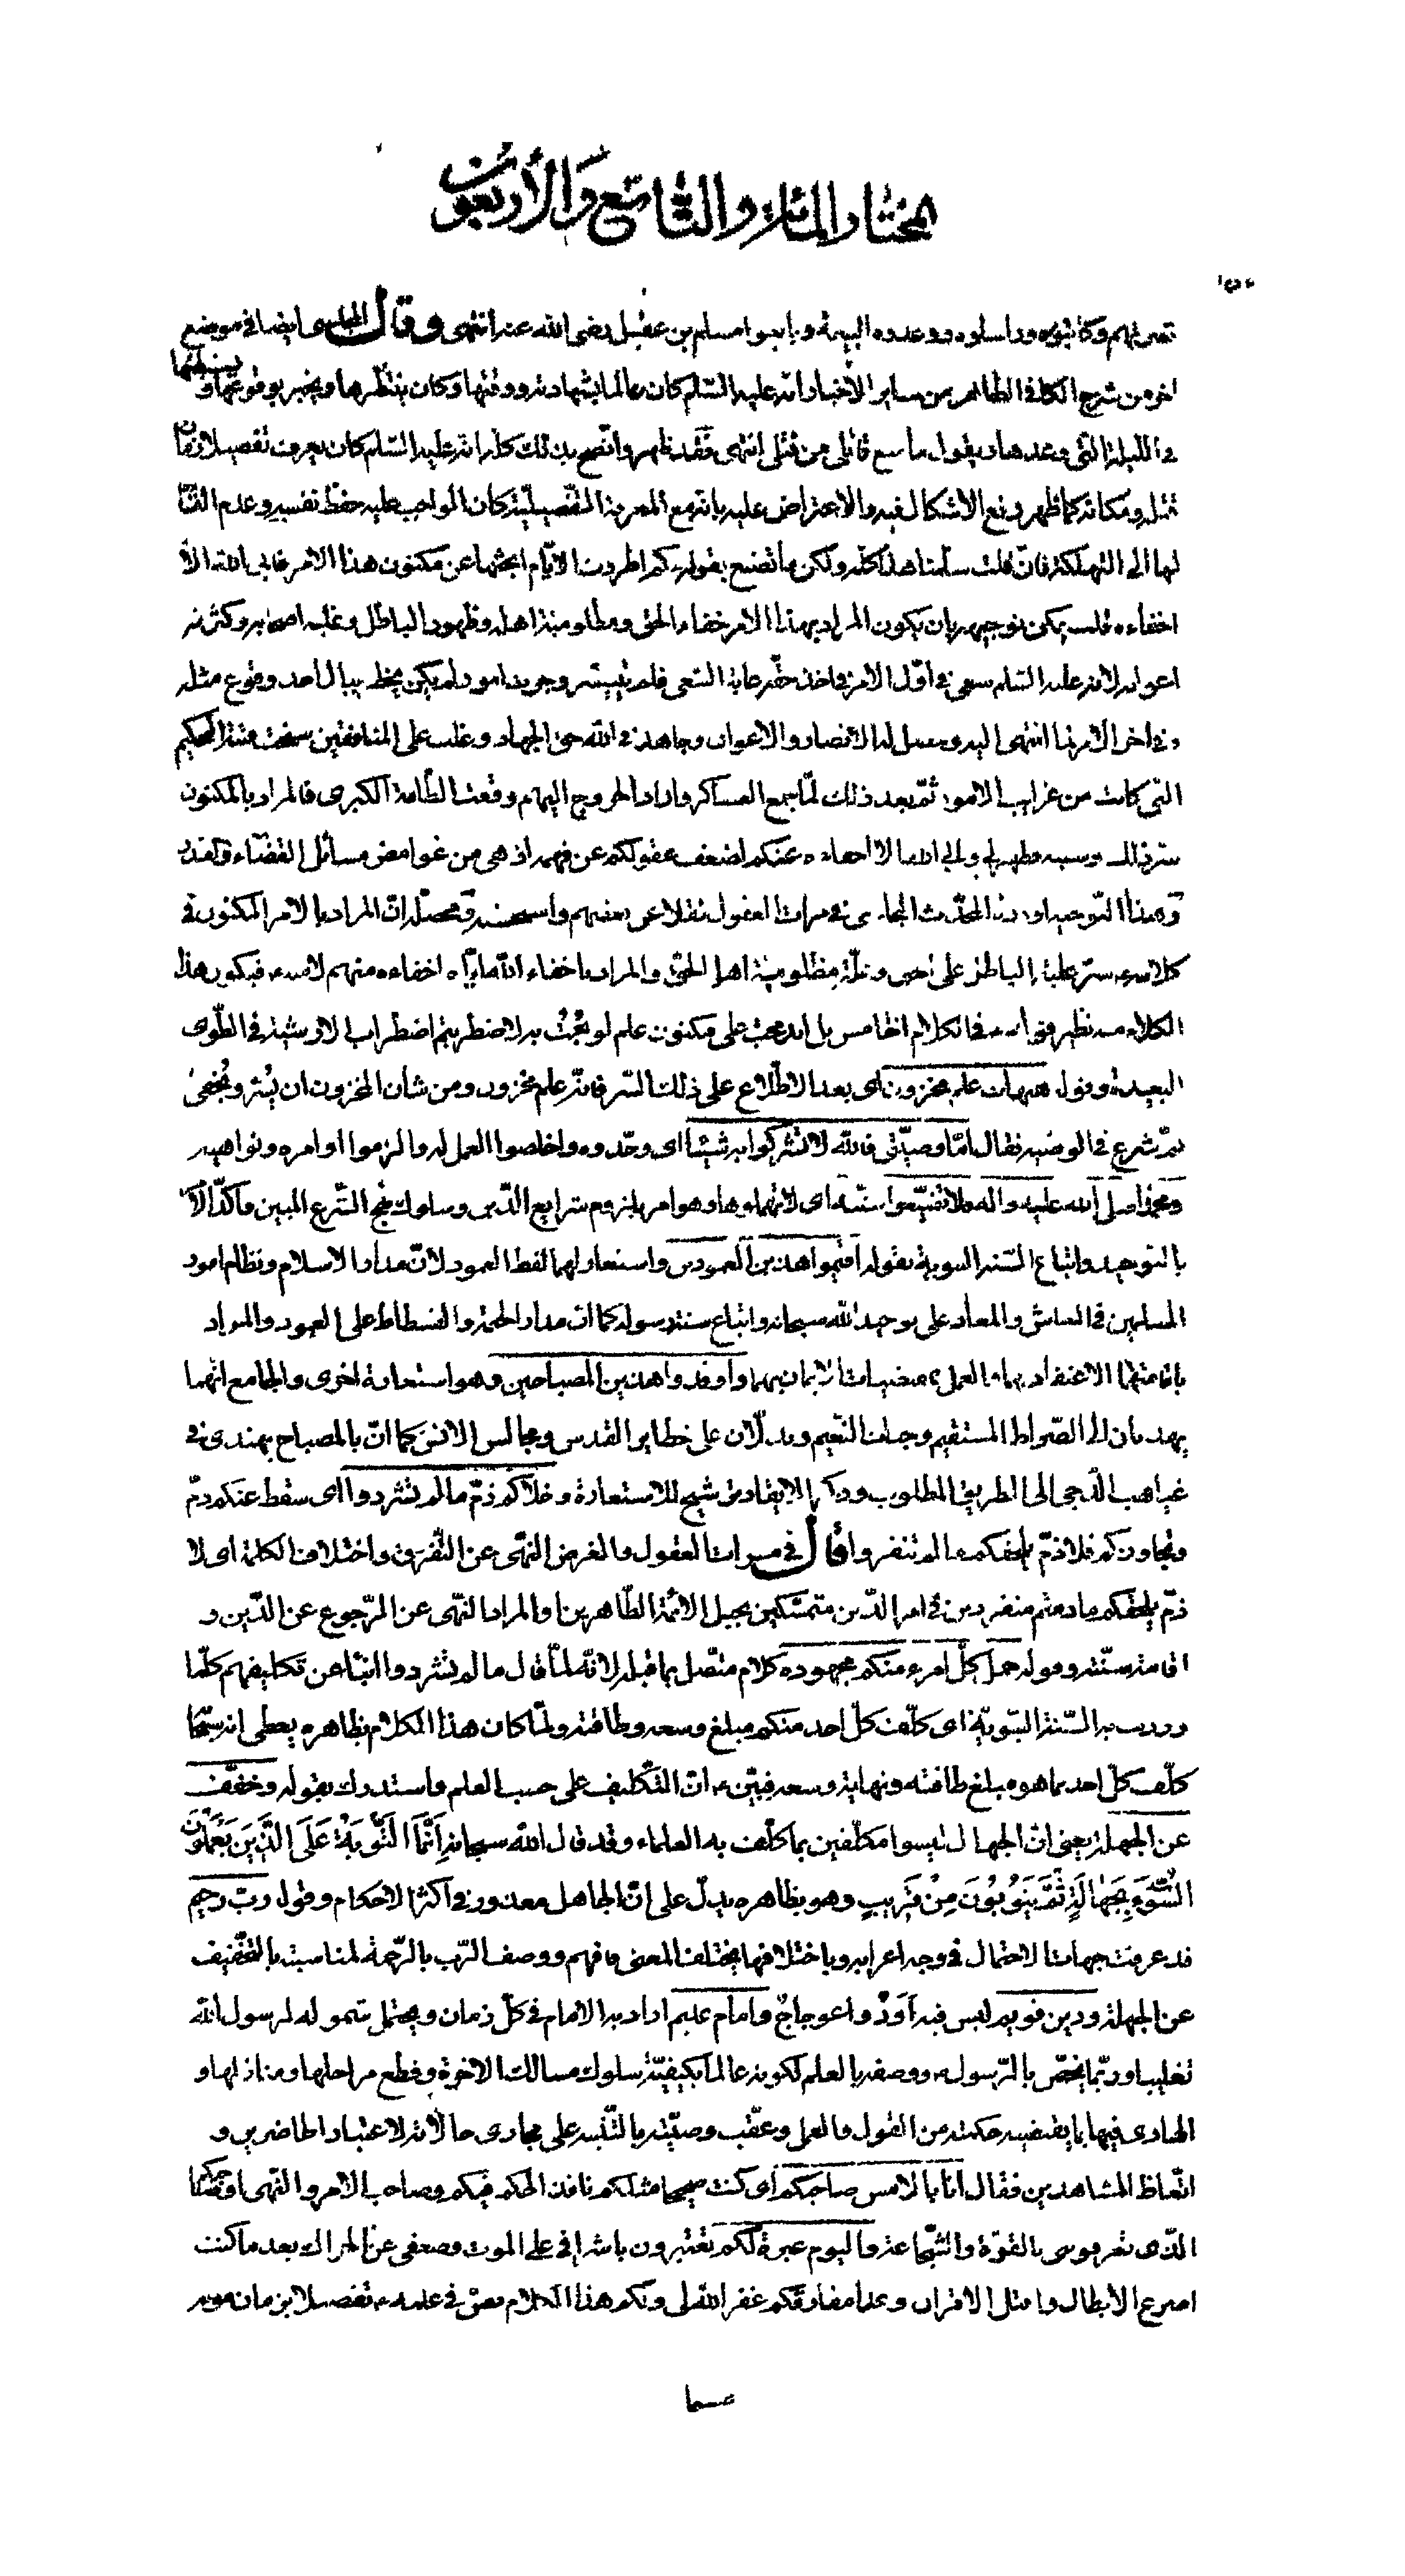 المختار المائة والتاسع والأربعون
نصرتهم وكاتبوه وراسلوه ووعدوه البيعة وبايعوا مسلم بن عقيل رضي الله عنه انتهى وقال المجلسي ايضا في موضع
اخر من شرح الكافي الظاهر من ساير الأخبار انه عليه السّلم كان عالما بشهادته ووقتها وكان ينتظرها ويخبر بوقوعها و يستبطئها
في الليلة التي وعدها ويقول ما منع قاتلي من قتلي انتهى فقد ظهر واتّضح بذلك كلّه انه عليه السّلم كان يعرف تفصيلا زمان
قتله ومكانه كما ظهر دفع الاشكال فيه والاعتراض عليه بانه مع المعرفة التفصيليّة كان الواجب عليه حفظ نفسه وعدم القا
لها الى التهلكة فان قلت سلّمنا هذا كلّه ولكن ما تصنع بقوله كم اطردت الايّام ابحثها عن مكنون هذا الامر فابى الله الّا
اخفاءه قلت يمكن توجيهه بان يكون المراد بهذا الامر خفاء الحق ومظلومية اهله وظهور الباطل وغلبة اصحابه وكثرة
اعوانه لانه عليه السّلم سعى في اوّل الامر في اخذ حقّه غاية السّعى فلم يتيسّر وجرت امور لم يكن يخطر ببال احد وقوع مثله
وفي اخر الامر لما انتهى اليه وحصل له الانصار والاعوان وجاهد في الله حق الجهاد وغلب على المنافقين سنحت فتنة التحكيم
التي كانت من غرايب الامور ثمّ بعد ذلك لمّا جمع العساكر واراد الخروج اليهم وقعت الطّامة الكبرى فالمراد بالمكنون
سرّ ذلك وسببه فظهر لي وابى الله الا اخفاءه عنكم لضعف عقولكم عن فهمه اذ هي من غوامض مسائل القضاء والقدر
وهذا التّوجيه اورده المحدّث المجلسي في مرات العقول نقلا عن بعضهم واستحسنه ومحصّله انّ المراد بالامر المكنون في
كلامه سرّ غلبة الباطل على الحق وعلّة مظلومية اهل الحقّ والمراد باخفاء الله ايّاه اخفاءه منهم لا منه فيكون هذا
الكلام منه نظير قوله في الكلام الخامس بل اندمجت على مكنون علم لو بُحْتُ به لاضطربتم اضطراب الارشية في الطّوى
البعيدة وقوله هيهات علم مخزون اى بعد الاطّلاع على ذلك السّر فانّه علم مخزون ومن شأن المخزون ان يُستر ويُخفى
ثم شرع في الوصيّة فقال امّا وصيّتي فالله لا تشركوا به شيئا اى وحّدوه واخلصوا العمل له والزموا اوامره ونواهيه
ومحمّدا صلى الله عليه واله فلا تضيّعوا سنّته اى لا تهملوها وهو امر بلزوم شرايع الدّين وسلوك نهج الشّرع المبين مؤكّد الامر
بالتوحيد واتباع السّنة النبوية بقوله اقيموا هذين العمودين واستعار لهما لفظ العمود لانّ مدار الاسلام ونظام امور
المسلمين في المعاش والمعاد على توحيد الله سبحانه واتباع سنّة رسوله كما انّ مدار الخيمة والفسطاط على العمود والمراد
باقامتهما الاعتقاد بهما والعمل بمقتضيات الايمان بهما واوقدوا هذين المصباحين وهو استعارة اخرى والجامع انّهما
يهديان الى الصّراط المستقيم وجنات النّعيم ويدلّان على خطاير القدس ومجالس الانس كما انّ بالمصباح يهتدى في
غياهب الدّجى الى الطريق المطلوب وذكر الايقاد ترشيح للاستعارة وخلاكم ذمّ ما لم تشردوا اى سقط عنكم ذمّ
وتجاوزكم فلا ذمّ يلحقكم ما لم تنفروا قال في مرات العقول والغرض النهى عن التّفرق واختلاف الكلمة اى لا
ذمّ يلحقكم ما دمتم منفردين في امر الدّين متمسّكين بحبل الائمة الطّاهرين او المراد النّهى عن الرّجوع عن الدّين و
اقامة سنّته وقوله حمل كلّ امرء منكم مجهوده كلام متّصل بما قبله لانّه لمّا قال ما لم تشردوا انبأ عن تكليفهم كلّما
وردت به السّنة النبّويّة اى كلّف كلّ احد منكم مبلغ وسعه وطاقته ولمّا كان هذا الكلام بظاهره يعطى انه سبحانه
كلّف كلّ احد بما هو مبلغ طاقته ونهاية وسعه فبيّن ان التّكليف على حسب العلم واستدرك بقوله وخفّف
عن الجهلة يعني انّ الجهال ليسوا مكلّفين بما كلّف به العلماء وقد قال الله سبحانه اِنَّمَا التَّوْبَةُ عَلَى الَّذينَ يَعْمَلُونَ
السُّوءَ بِجَهالَةٍ ثُمَّ يَتُوبُونَ مِنْ قَريبٍ وهو بظاهره يدلّ على انّ الجاهل معذور في اكثر الاحكام وقوله ربّ رحيم
قد عرفت جهات الاحتمال في وجه اعرابه وباختلافها يختلف المعنى فافهم ووصف الرّب بالرّحمة لمناسبته بالتخفيف
عن الجهلة ودين قويم ليس فيه اَوَدٌ واعوجاجٌ وامام عليم اراد به الامام في كلّ زمان ويحتمل شموله لرسول الله
تغليبا وربّما يخصّ بالرّسول ووصفه بالعلم لكونه عالما بكيفيّة سلوك مسالك الاخرة وقطع مراحلها ومنازلها و
الهادى فيها بما يقتضيه حكمته من القول والعمل وعقّب وصيّته بالتّنبيه على مجارى حالاته لاعتبار الحاضرين و
اتّعاظ المشاهدين فقال انا بالامس صاحبكم اى كنت صحيحا مثلكم نافذ الحكم فيكم وصاحب الامر والنّهى او صاحبكم
الذّى تعرفونى بالقوّة والشّجاعة واليوم عبرة لكم تعتبرون باشرافى على الموت وضعفى عن الحراك بعد ما كنت
اصرع الابطال واقتل الاقران وغدا مفارقكم غفر الله لى ولكم هذا الكلام نصّ في علمه تفصيلا بزمان موته